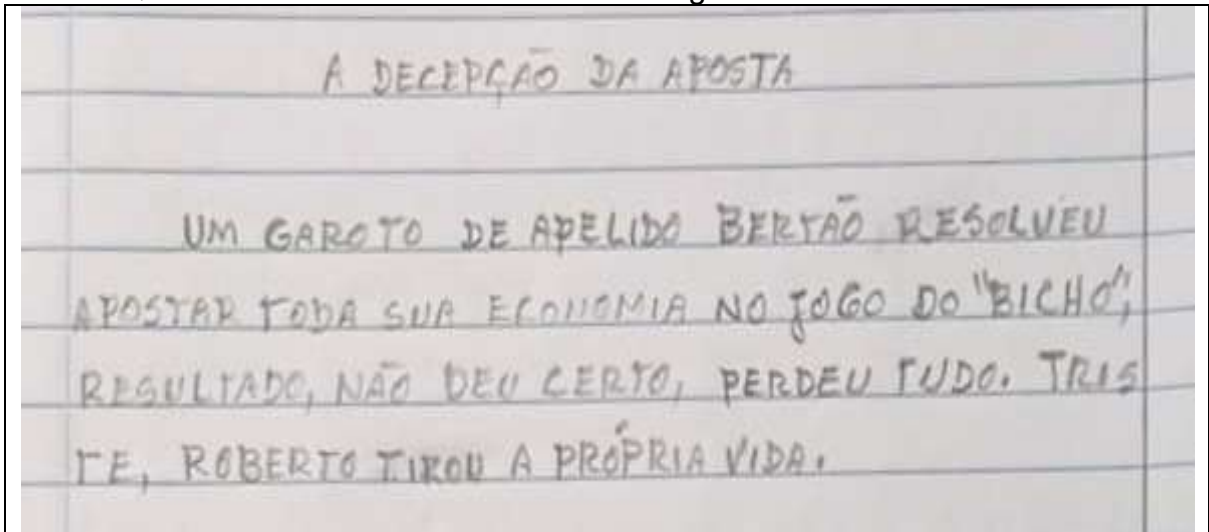 A DECEPÇÃO DA APOSTA
UM GAROTO DE APELIDO BERTÃO RESOLVEU
APOSTAR TODA SUA ECONOMIA NO JOGO DO "BICHO",
RESULTADO, NÃO DEU CERTO, PERDEU TUDO. TRIS
TE, ROBERTO TIROU A PRÓPRIA VIDA.